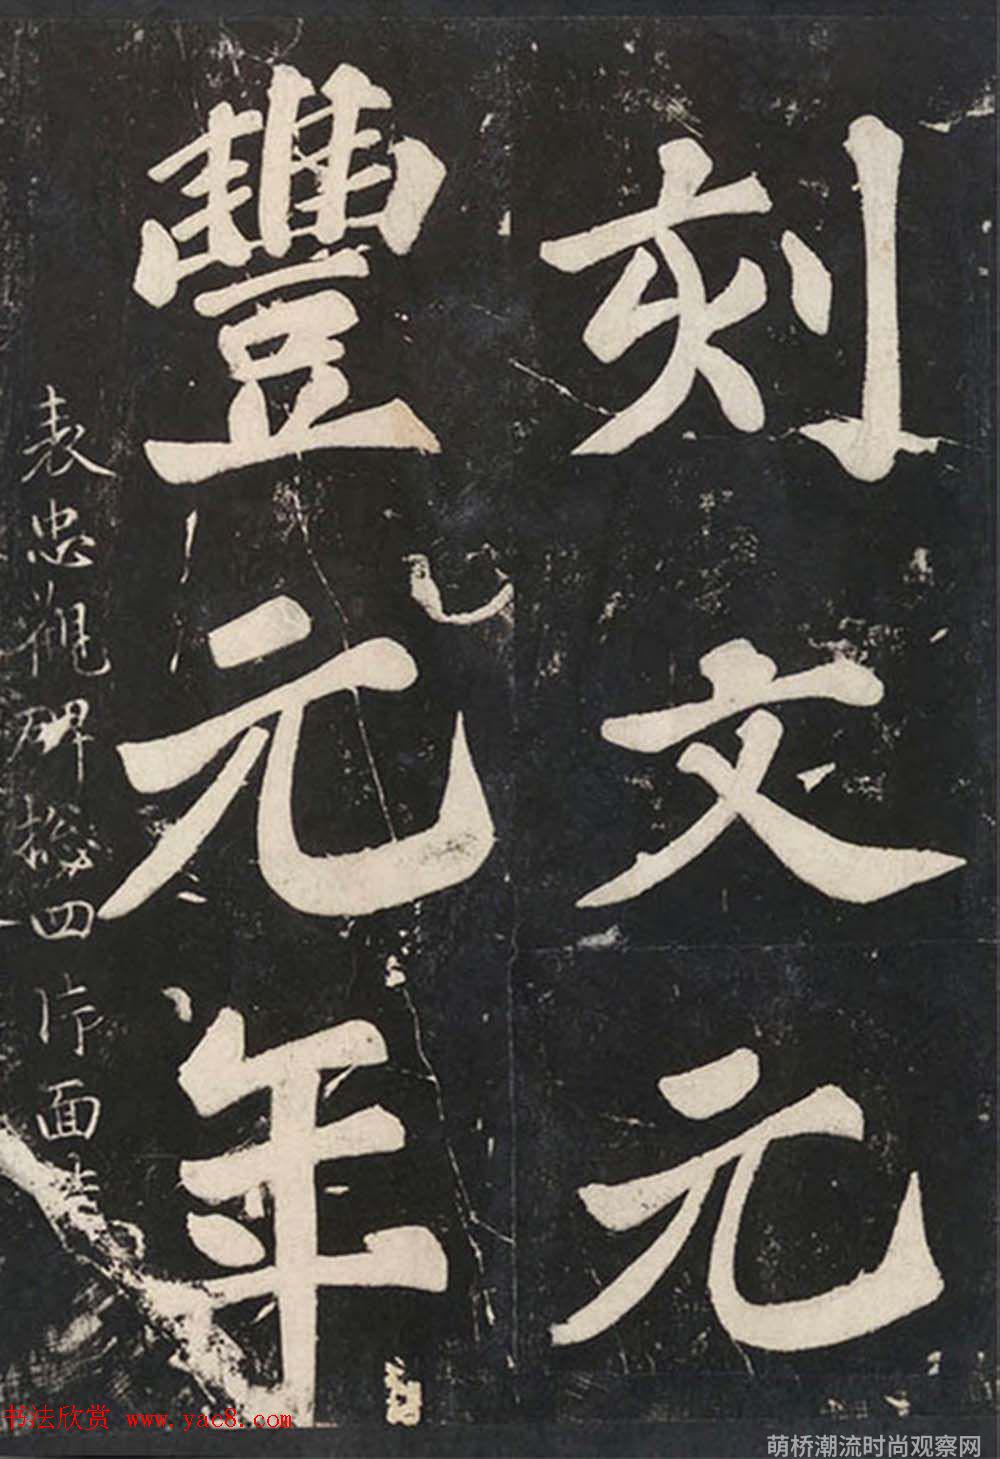 刻文元
豐元年
表忠觀碑總四片面
书法欣赏 www.yac8.com
萌桥潮流时尚观察网